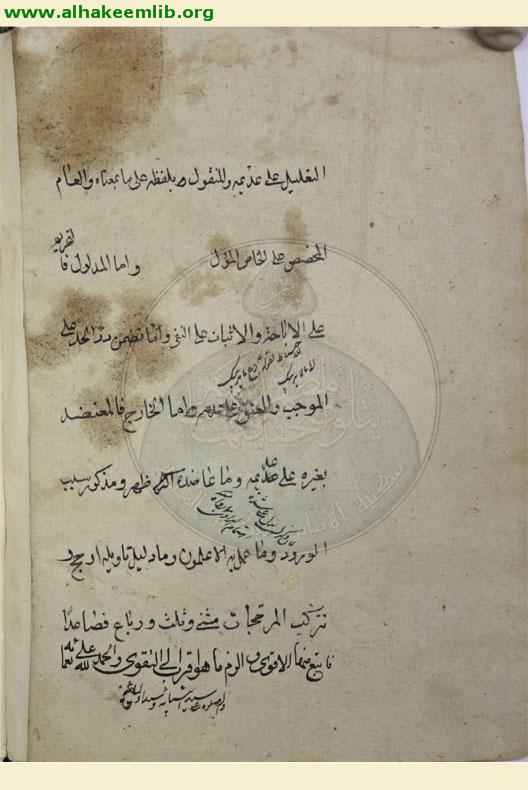 www.alhakeemlib.org
التعليل على عديمه والمنقول بلفظه على ما بمعناه والعام
المخصص على الخاص المؤول واما المدلول فا لتحريم
على الاباحة والاثبات على النفى واما تضمن درء الحد على
الموجب والعتق على عديمه واما الخارج فالمعتضد
بغيره على عديمه وما عاضده اكثر ظهر ومذكور سبب
الورود وما عمل به الاعلمون وما دليل تاويله ارجح و
تتركب المرجحات مثنى وثلث ورباع فصاعدا
فاتبع منها الاقوى والزم ما هو اقرب الى التقوى والحمد لله على نعمائه